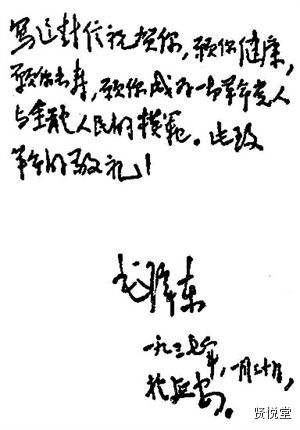 写这封信祝贺你，愿你健康，
愿你长寿，愿你成为一切革命党人
与全体人民的模范。此致
革命的敬礼！
毛泽东
一九三七年，一月三十日，
于延安。
贤悦堂